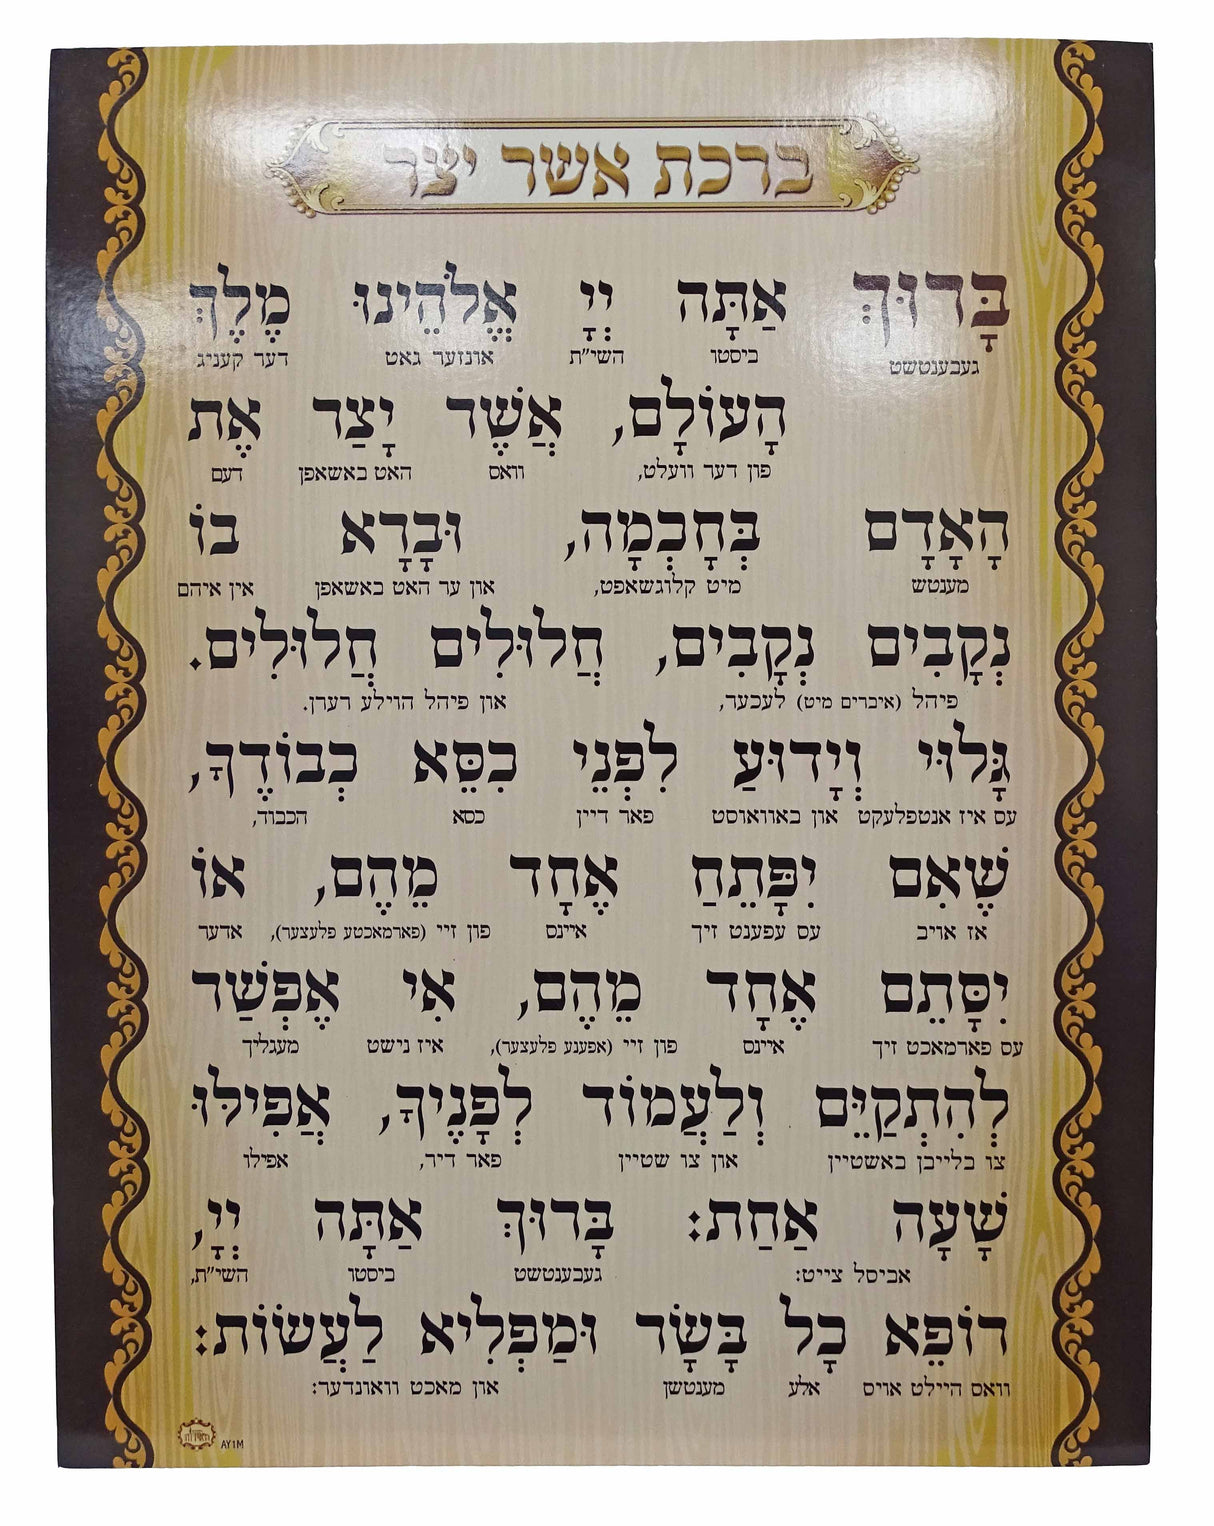 ברכת אשר יצר
בָּרוּךְ אַתָּה יְיָ אֱלֹהֵינוּ מֶלֶךְ
געבענטשט ביסטו השי״ת אונזער גאט דער קעניג
הָעוֹלָם, אֲשֶׁר יָצַר אֶת
פון דער וועלט, וואס האט באשאפן דעם
הָאָדָם בְּחָכְמָה, וּבָרָא בוֹ
מענטש מיט קלוגשאפט, און ער האט באשאפן אין איהם
נְקָבִים נְקָבִים, חֲלוּלִים חֲלוּלִים.
פיהל (איברים מיט) לעכער, און פיהל הוילע רערן.
גָּלוּי וְיָדוּעַ לִפְנֵי כִסֵּא כְבוֹדֶךָ,
עס איז אנטפלעקט און באוואוסט פאר דיין כסא הכבוד,
שֶׁאִם יִפָּתֵחַ אֶחָד מֵהֶם, אוֹ
אז אויב עס עפענט זיך איינס פון זיי (פארמאכטע פלעצער), אדער
יִסָּתֵם אֶחָד מֵהֶם, אִי אֶפְשַׁר
עס פארמאכט זיך איינס פון זיי (אפענע פלעצער), איז נישט מעגליך
לְהִתְקַיֵּם וְלַעֲמוֹד לְפָנֶיךָ, אֲפִילּוּ
צו בלייבן באשטיין און צו שטיין פאר דיר, אפילו
שָׁעָה אַחַת: בָּרוּךְ אַתָּה יְיָ,
אביסל צייט: געבענטשט ביסטו השי״ת,
רוֹפֵא כָל בָּשָׂר וּמַפְלִיא לַעֲשׂוֹת:
וואס היילט אויס אלע מענטשן און מאכט וואונדער:
AY1M